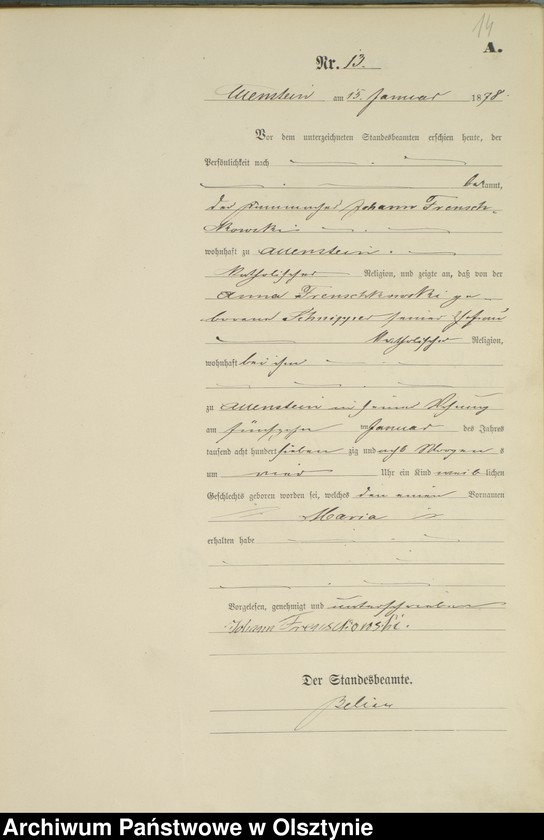 14
A.
Nr. 13.
Allenstein am 15 Januar 1878.
Vor dem unterzeichneten Standesbeamten erschien heute, der
Persönlichkeit nach
bekannt,
der Johann Trensch-
kowski
wohnhaft zu Allenstein
katholischer Religion, und zeigte an, daß von der
Anna Trenschkowski ge-
borene Schnipper seiner Ehefrau
katholischer Religion,
wohnhaft bei ihm
zu Allenstein in seiner Wohnung
am fünfzehn ten Januar des Jahres
tausend acht hundert sieben zig und acht Morgens
um vier Uhr ein Kind weib lichen
Geschlechts geboren worden sei, welches den einen Vornamen
Maria
erhalten habe
Vorgelesen, genehmigt und unterschrieben
Johann Trenschkowski.
Der Standesbeamte.